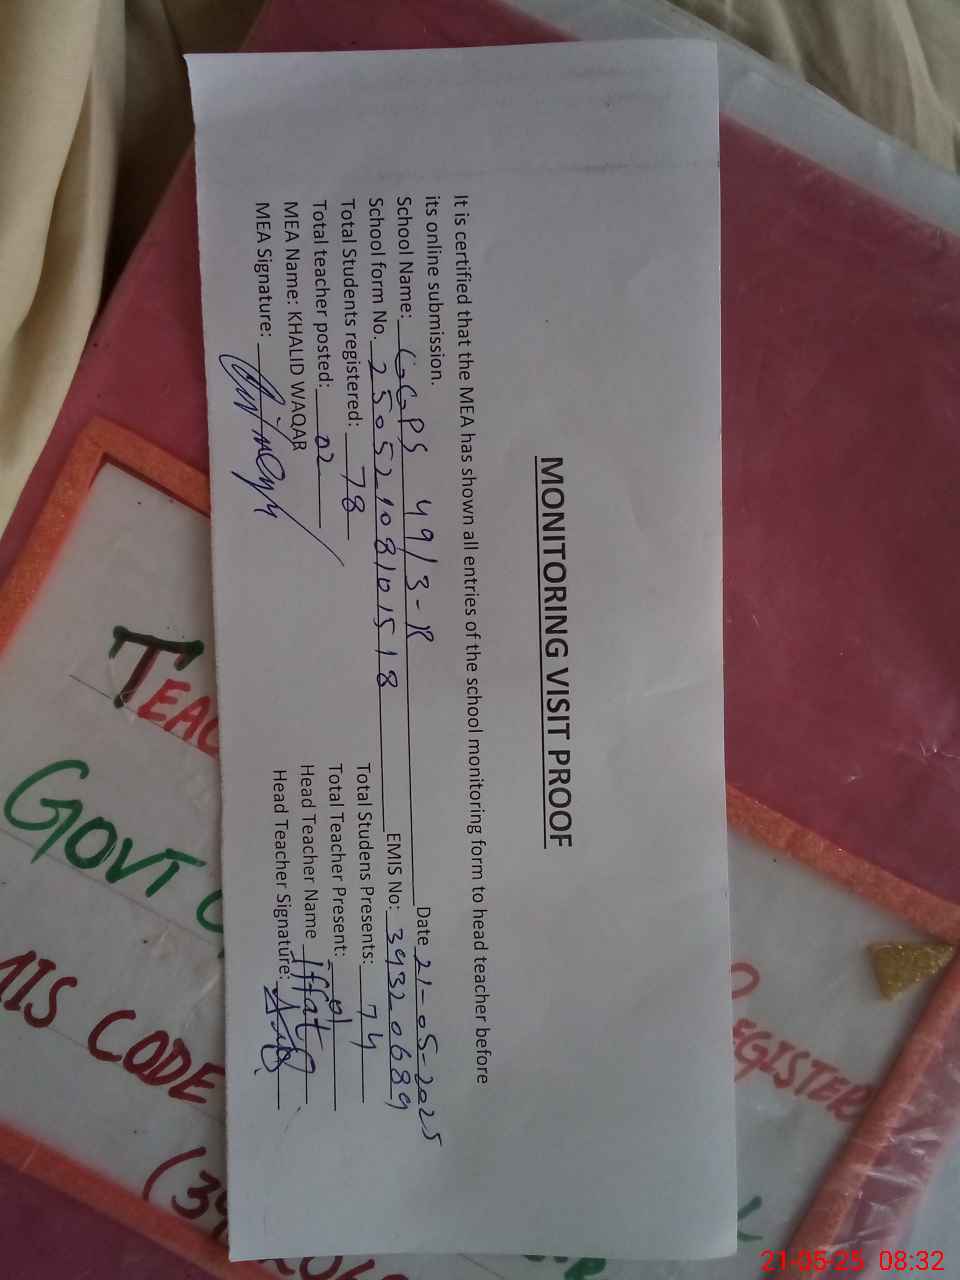 MONITORING VISIT PROOF
It is certified that the MEA has shown all entries of the school monitoring form to head teacher before
its online submission.
School Name: GGPS 49/3-R Date 21-05-2025
School form No. 25052108101518 EMIS No: 39320689
Total Students registered: 78 Total Studens Presents: 74
Total teacher posted: 02 Total Teacher Present: 01
MEA Name: KHALID WAQAR Head Teacher Name Iffat
MEA Signature: Head Teacher Signature:
TEAC
REGISTER
GOVT
MIS CODE
(39
21-05-25 08:32